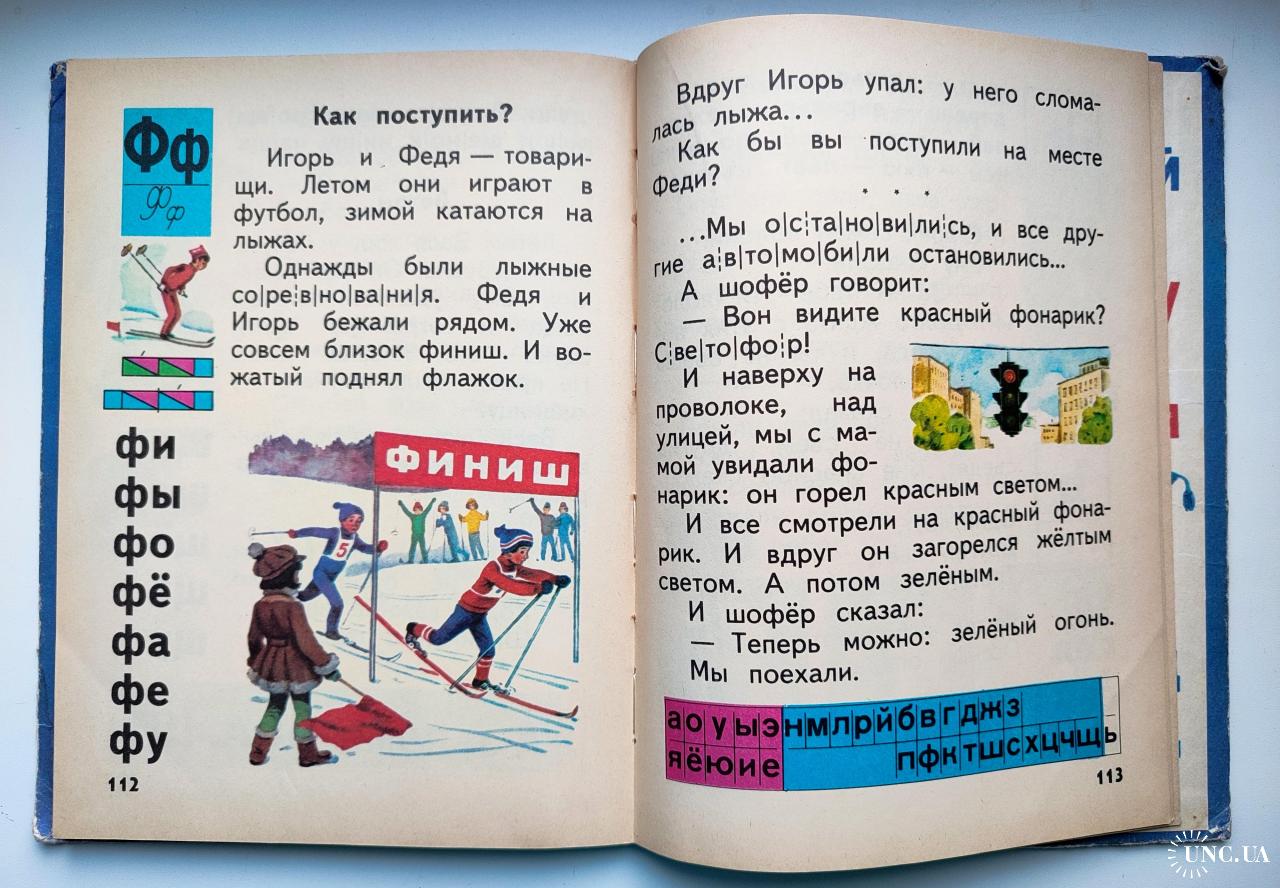 Фф
Фф
фи
фы
фо
фё
фа
фе
фу
112
Как поступить?
Игорь и Федя — товари-
щи. Летом они играют в
футбол, зимой катаются на
лыжах.
Однажды были лыжные
со|ре¦в|но|ва|ни|я. Федя и
Игорь бежали рядом. Уже
совсем близок финиш. И во-
жатый поднял флажок.
ФИНИШ
5
Вдруг Игорь упал: у него слома-
лась лыжа...
Как бы вы поступили на месте
Феди?
* * *
...Мы о|с¦та|но|ви|ли|сь, и все дру-
гие а¦в|то|мо|би|ли остановились...
А шофёр говорит:
— Вон видите красный фонарик?
С¦ве|то|фо¦р!
И наверху на
проволоке, над
улицей, мы с ма-
мой увидали фо-
нарик: он горел красным светом...
И все смотрели на красный фона-
рик. И вдруг он загорелся жёлтым
светом. А потом зелёным.
И шофёр сказал:
— Теперь можно: зелёный огонь.
Мы поехали.
а о у ы э н м л р й б в г д ж з
я ё ю и е п ф к т ш с х ц ч щ ь
113
UNC.UA